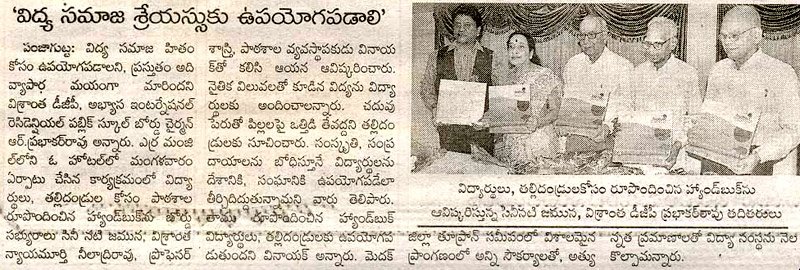 ‘విద్య సమాజ శ్రేయస్సుకు ఉపయోగపడాలి’
పంజాగుట్ట: విద్య సమాజ హితం
కోసం ఉపయోగపడాలని, ప్రస్తుతం అది
వ్యాపార మయంగా మారిందని
విశ్రాంత డీజీపీ, అభ్యాస ఇంటర్నేషనల్
రెసిడెన్షియల్ పబ్లిక్ స్కూల్ బోర్డు చైర్మన్
ఆర్.ప్రభాకర్‌రావు అన్నారు. ఎర్ర మంజి
ల్‌లోని ఓ హోటల్‌లో మంగళవారం
ఏర్పాటు చేసిన కార్యక్రమంలో విద్యా
ర్థులు, తల్లిదండ్రుల కోసం పాఠశాల
రూపొందించిన హ్యాండ్‌బుక్‌ను బోర్డు
సభ్యురాలు సినీ నటి జమున, విశ్రాంత
న్యాయమూర్తి నీలాద్రిరావు, ప్రొఫెసర్
శాస్త్రి, పాఠశాల వ్యవస్థాపకుడు వినాయ
క్‌తో కలిసి ఆయన ఆవిష్కరించారు.
నైతిక విలువలతో కూడిన విద్యను విద్యా
ర్థులకు అందించాలన్నారు. చదువు
పేరుతో పిల్లలపై ఒత్తిడి తేవద్దని తల్లిదం
డ్రులకు సూచించారు. సంస్కృతి, సంప్ర
దాయాలను బోధిస్తూనే విద్యార్థులను
దేశానికి, సంఘానికి ఉపయోగపడేలా
తీర్చిదిద్దుతున్నామని వారు తెలిపారు.
తాము రూపొందించిన హ్యాండ్‌బుక్
విద్యార్థులు, తల్లిదండ్రులకు ఉపయోగప
డుతుందని వినాయక్ అన్నారు. మెదక్
విద్యార్థులు, తల్లిదండ్రులకోసం రూపొందించిన హ్యాండ్‌బుక్‌ను
ఆవిష్కరిస్తున్న సినీనటి జమున, విశ్రాంత డీజీపీ ప్రభాకర్‌రావు తదితరులు
జిల్లా తూప్రాన్ సమీపంలో విశాలమైన
ప్రాంగణంలో అన్ని సౌకర్యాలతో, అత్యు
న్నత ప్రమాణాలతో విద్యా సంస్థను నెల
కొల్పామన్నారు.